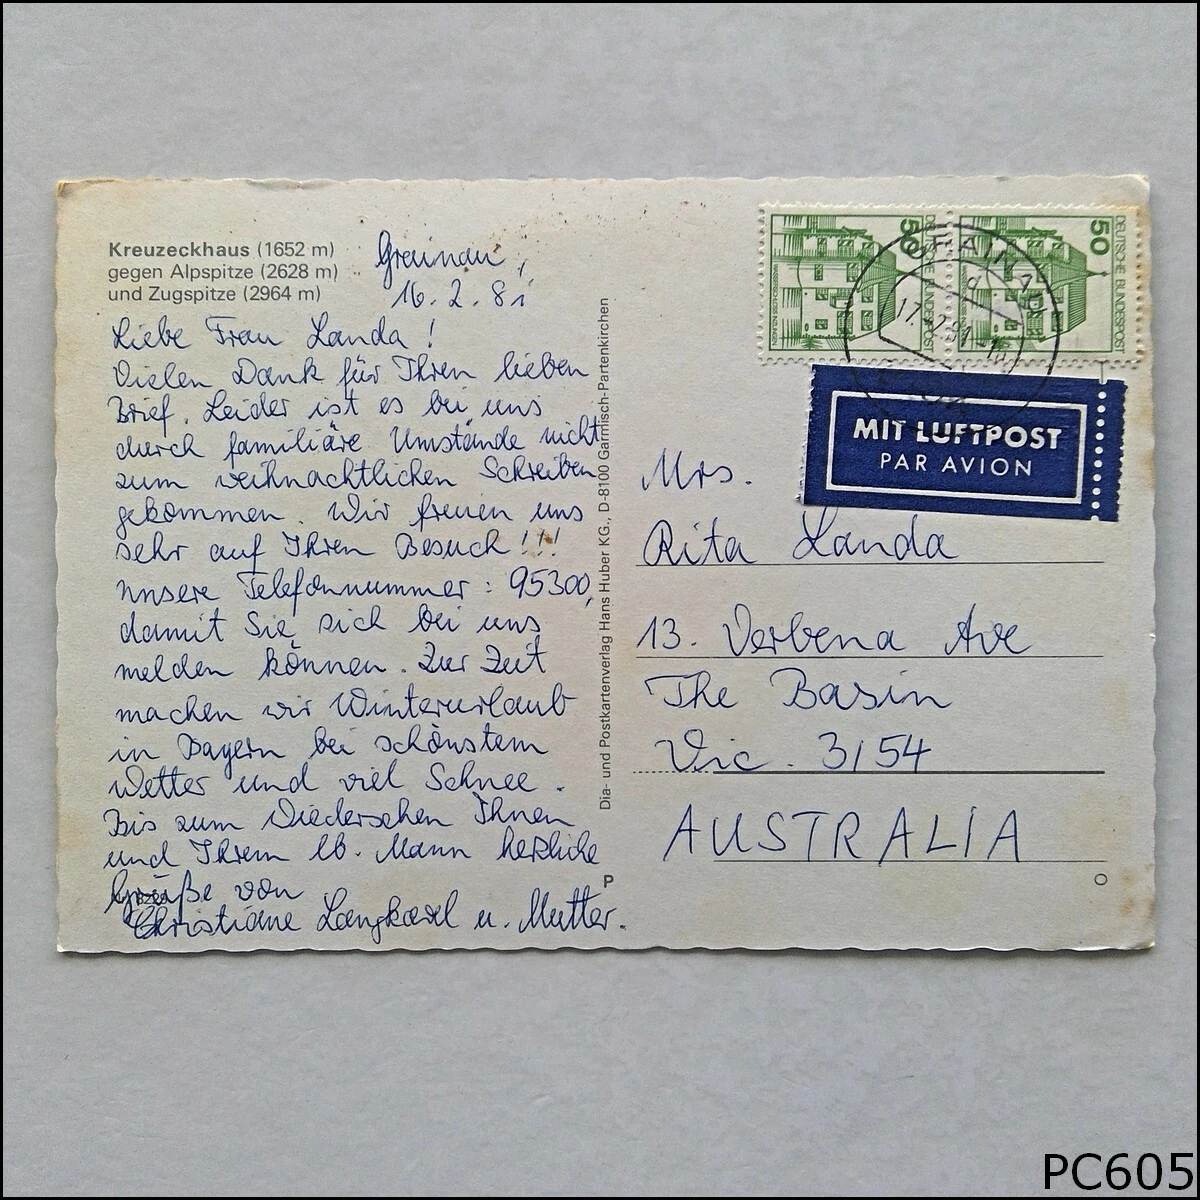 Kreuzeckhaus (1652 m)
gegen Alpspitze (2628 m)
und Zugspitze (2964 m)
Grainau,
16.2.81
Liebe Frau Landa!
Vielen Dank für Ihren lieben
Brief. Leider ist es bei uns
durch familiäre Umstände nicht
zum weihnachtlichen Schreiben
gekommen. Wir freuen uns
sehr auf Ihren Besuch!!!
Unsere Telefonnummer: 95300,
damit Sie sich bei uns
melden können. Zur Zeit
machen wir Winterurlaub
in Bayern bei schönstem
Wetter und viel Schnee.
Bis zum Wiedersehen Ihnen
und Ihrem lb. Mann herzliche
Grüße von
Christiane Langkavel u. Mutter.
Dia- und Postkartenverlag Hans Huber KG., D-8100 Garmisch-Partenkirchen
P
50
DEUTSCHE BUNDESPOST
50
DEUTSCHE BUNDESPOST
GRAINAU
MIT LUFTPOST
PAR AVION
Mrs.
Rita Landa
13. Verbena Ave
The Basin
Vic. 3154
AUSTRALIA
O
PC605